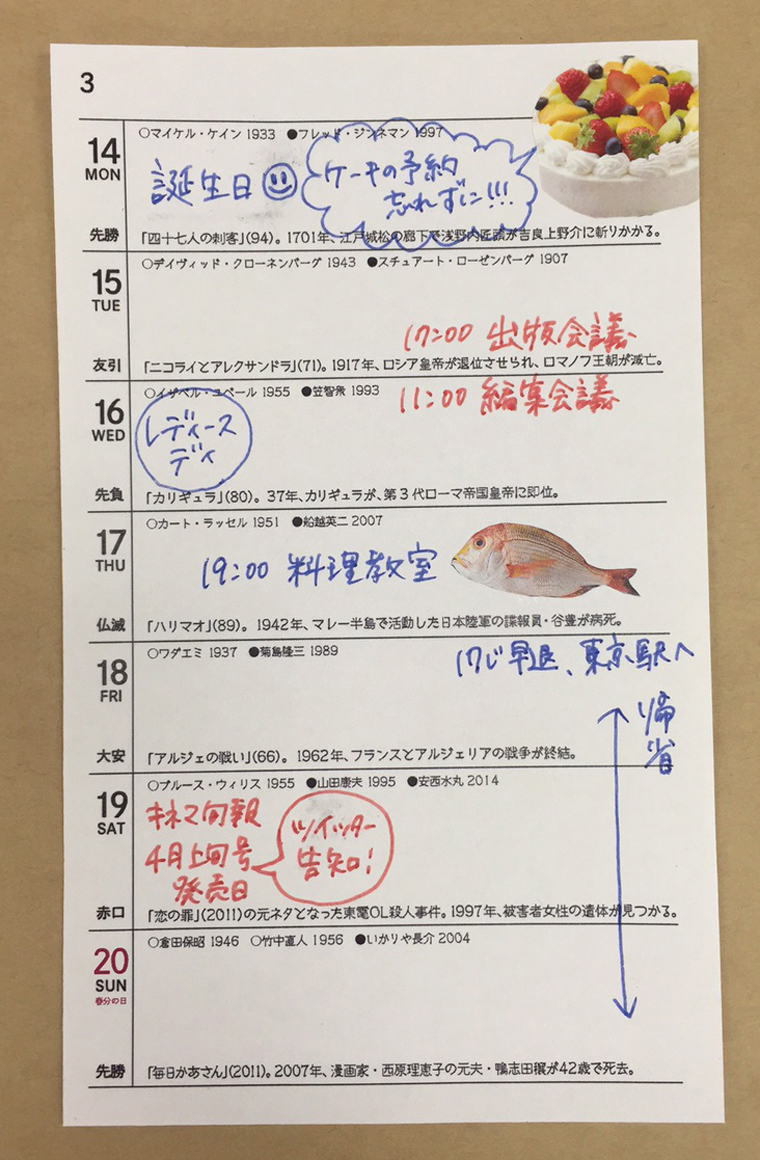 3
14
MON
先勝
○マイケル・ケイン 1933 ●フレッド・ジンネマン 1997
誕生日
ケーキの予約
忘れずに!!!
「四十七人の刺客」(94)。1701年、江戸城松の廊下で浅野内匠頭が吉良上野介に斬りかかる。
15
TUE
友引
○デイヴィッド・クローネンバーグ 1943 ●スチュアート・ローゼンバーグ 1907
17:00 出版会議
「ニコライとアレクサンドラ」(71)。1917年、ロシア皇帝が退位させられ、ロマノフ王朝が滅亡。
16
WED
先負
○イザベル・ユペール 1955 ●笠智衆 1993
11:00 編集会議
レディース
デイ
「カリギュラ」(80)。37年、カリギュラが、第3代ローマ帝国皇帝に即位。
17
THU
仏滅
○カート・ラッセル 1951 ●船越英二 2007
19:00 料理教室
「ハリマオ」(89)。1942年、マレー半島で活動した日本陸軍の諜報員・谷豊が病死。
18
FRI
大安
○ワダエミ 1937 ●菊島隆三 1989
17じ早退、東京駅へ
帰省
「アルジェの戦い」(66)。1962年、フランスとアルジェリアの戦争が終結。
19
SAT
赤口
○ブルース・ウィリス 1955 ●山田康夫 1995 ●安西水丸 2014
キネマ旬報
4月上旬号
発売日
ツイッター
告知!
「恋の罪」(2011)の元ネタとなった東電OL殺人事件。1997年、被害者女性の遺体が見つかる。
20
SUN
春分の日
先勝
○倉田保昭 1946 ○竹中直人 1956 ●いかりや長介 2004
「毎日かあさん」(2011)。2007年、漫画家・西原理恵子の元夫・鴨志田穣が42歳で死去。